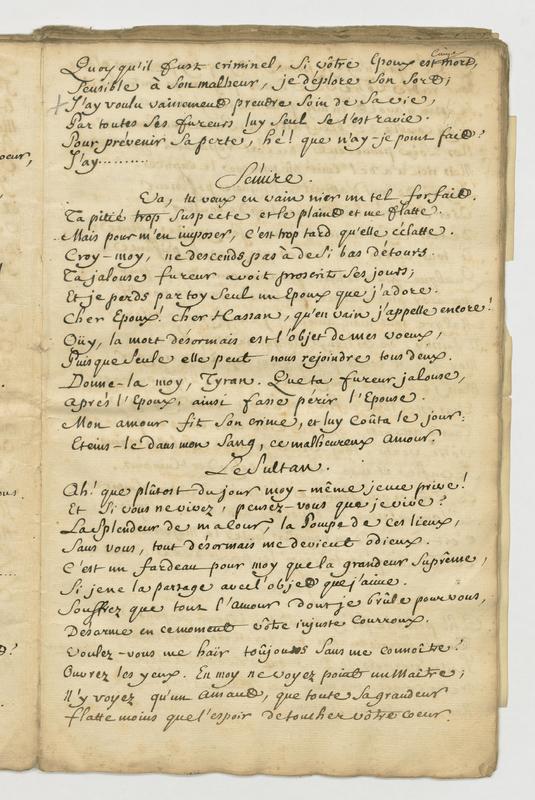 Quoy qu'il fust criminel, si vôtre Epoux est mort,
Sensible à son malheur, je déplore son sort;
J'ay voulu vainement prendre soin de sa vie,
Par toutes ses fureurs luy seul se l'est ravie.
Pour prévenir sa perte, hé! que n'ay-je point fait?
J'ay..........
Va, tu veux en vain nier un tel forfait.
Ta pitié trop suspecte et le plaint et me flatte.
Mais pour m'en imposer, c'est trop tard qu'elle éclatte.
Croy-moy, ne descends pas à de si bas détours.
Ta jalouse fureur avoit proscrit ses jours;
Et je perds par toy seul un Epoux que j'adore.
Cher Epoux! cher Hassan, qu'en vain j'appelle encore!
Oüy, la mort désormais est l'objet de mes voeux,
Puisque seule elle peut nous rejoindre tous deux.
Donne-la moy, Tyran. Que ta fureur jalouse,
après l'Epoux, ainsi fasse périr l'Epouse.
Mon amour fit son crime, et luy coûta le jour:
Eteins-le dans mon sang, ce malheureux amour.
Le Sultan.
Ah! que plûtost du jour moy-même je me prive!
Et si vous ne vivez, pensez-vous que je vive?
La splendeur de ma cour, la Pompe de ces lieux,
Sans vous, tout désormais me devient odieux.
C'est un fardeau pour moy que la grandeur suprême,
Si je ne la partage avec l'objet que j'aime.
Souffrez que tout l'amour dont je brûle pour vous,
Desarme en ce moment vôtre injuste courroux.
Voulez-vous me haïr toûjours sans me connoître?
Ouvrez les yeux. En moy ne voyez point un Maître;
N'y voyez qu'un Amant, que toute sa grandeur
flatte moins que l'espoir de toucher vôtre coeur.